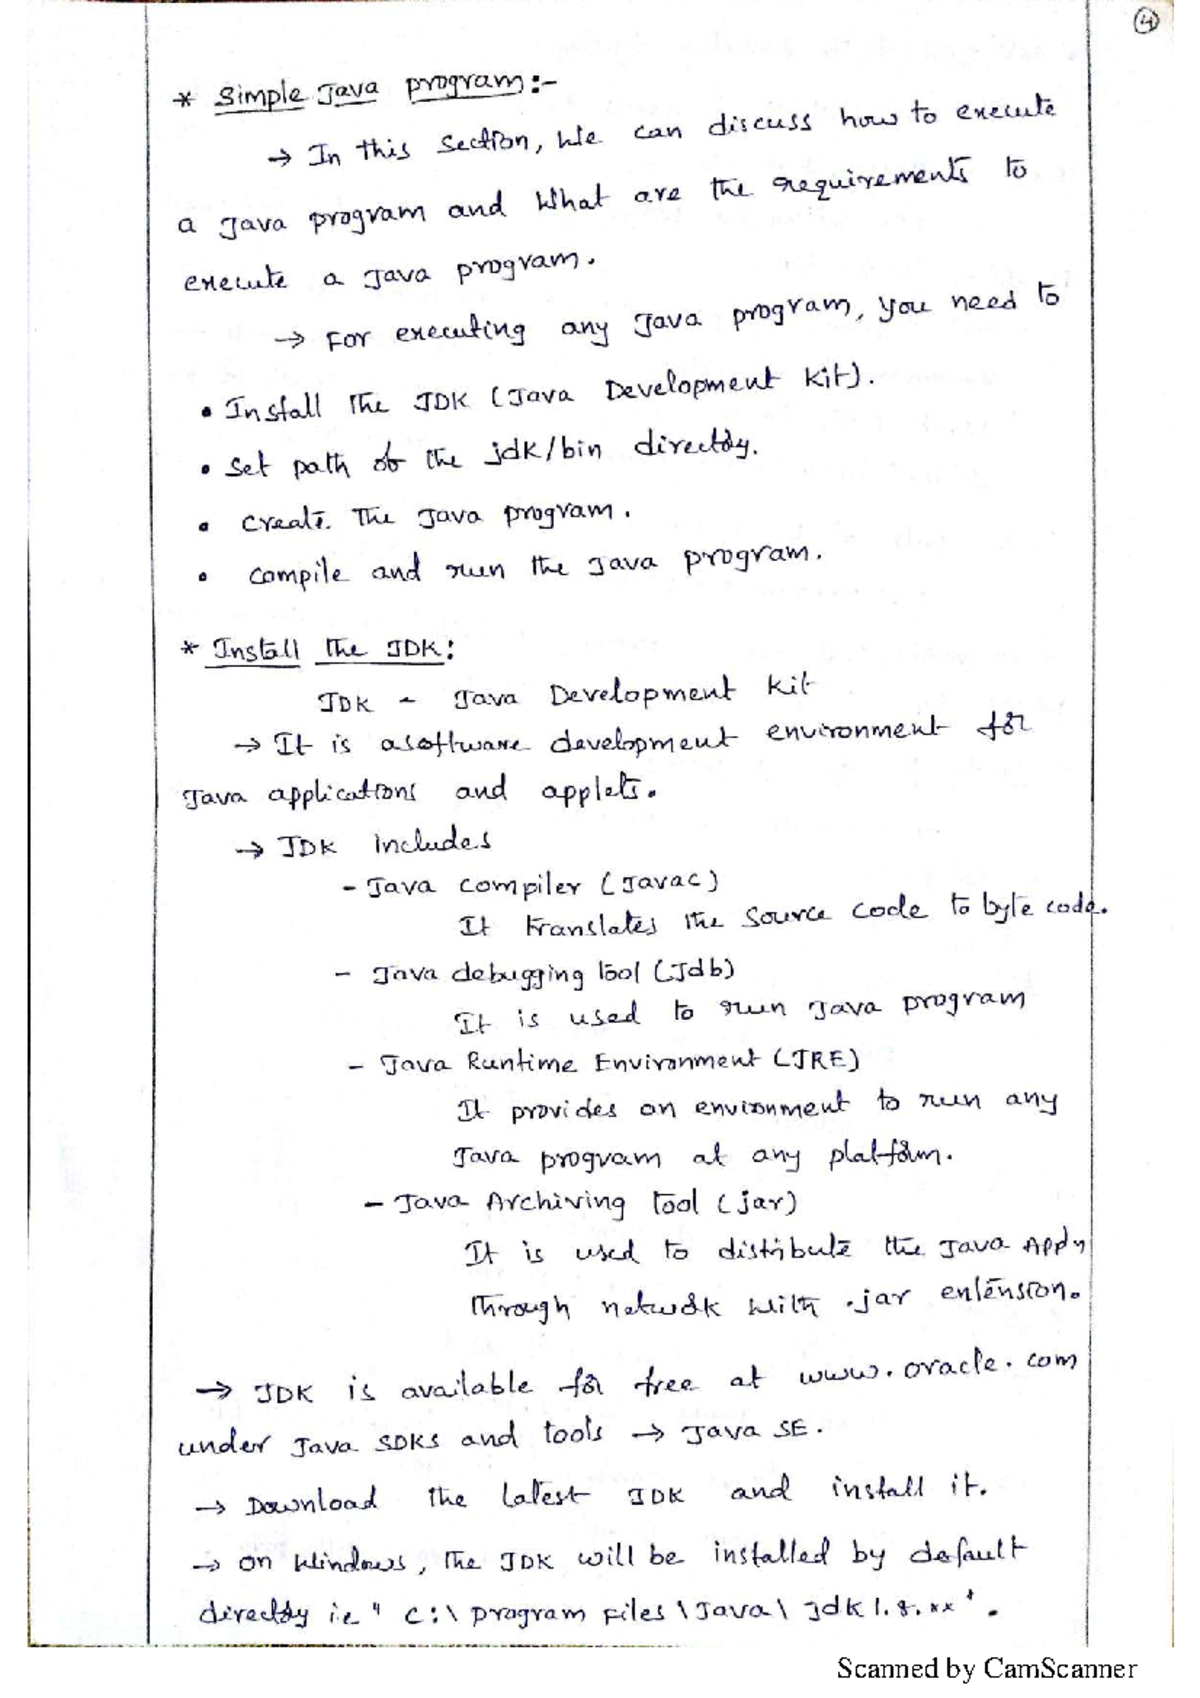 4
* Simple Java program:-
→ In this section, We can discuss how to execute
a Java program and What are the requirements to
execute a Java program.
→ For executing any Java program, you need to
• Install the JDK (Java Development Kit).
• Set path of the jdk/bin directory.
• Create the Java program.
• Compile and run the Java program.
* Install the JDK:
JDK - Java Development Kit
→ It is a software development environment for
Java applications and applets.
→ JDK includes
- Java compiler (Javac)
It translates the source code to byte code.
- Java debugging tool (Jdb)
It is used to run Java program
- Java Runtime Environment (JRE)
It provides an environment to run any
Java program at any platform.
- Java Archiving tool (jar)
It is used to distribute the Java Appln
through network with .jar extension.
→ JDK is available for free at www.oracle.com
under Java SDKs and tools → Java SE.
→ Download the latest JDK and install it.
→ on Windows, the JDK will be installed by default
directory i.e " C:\program files\Java\jdk1.8.xx".
Scanned by CamScanner